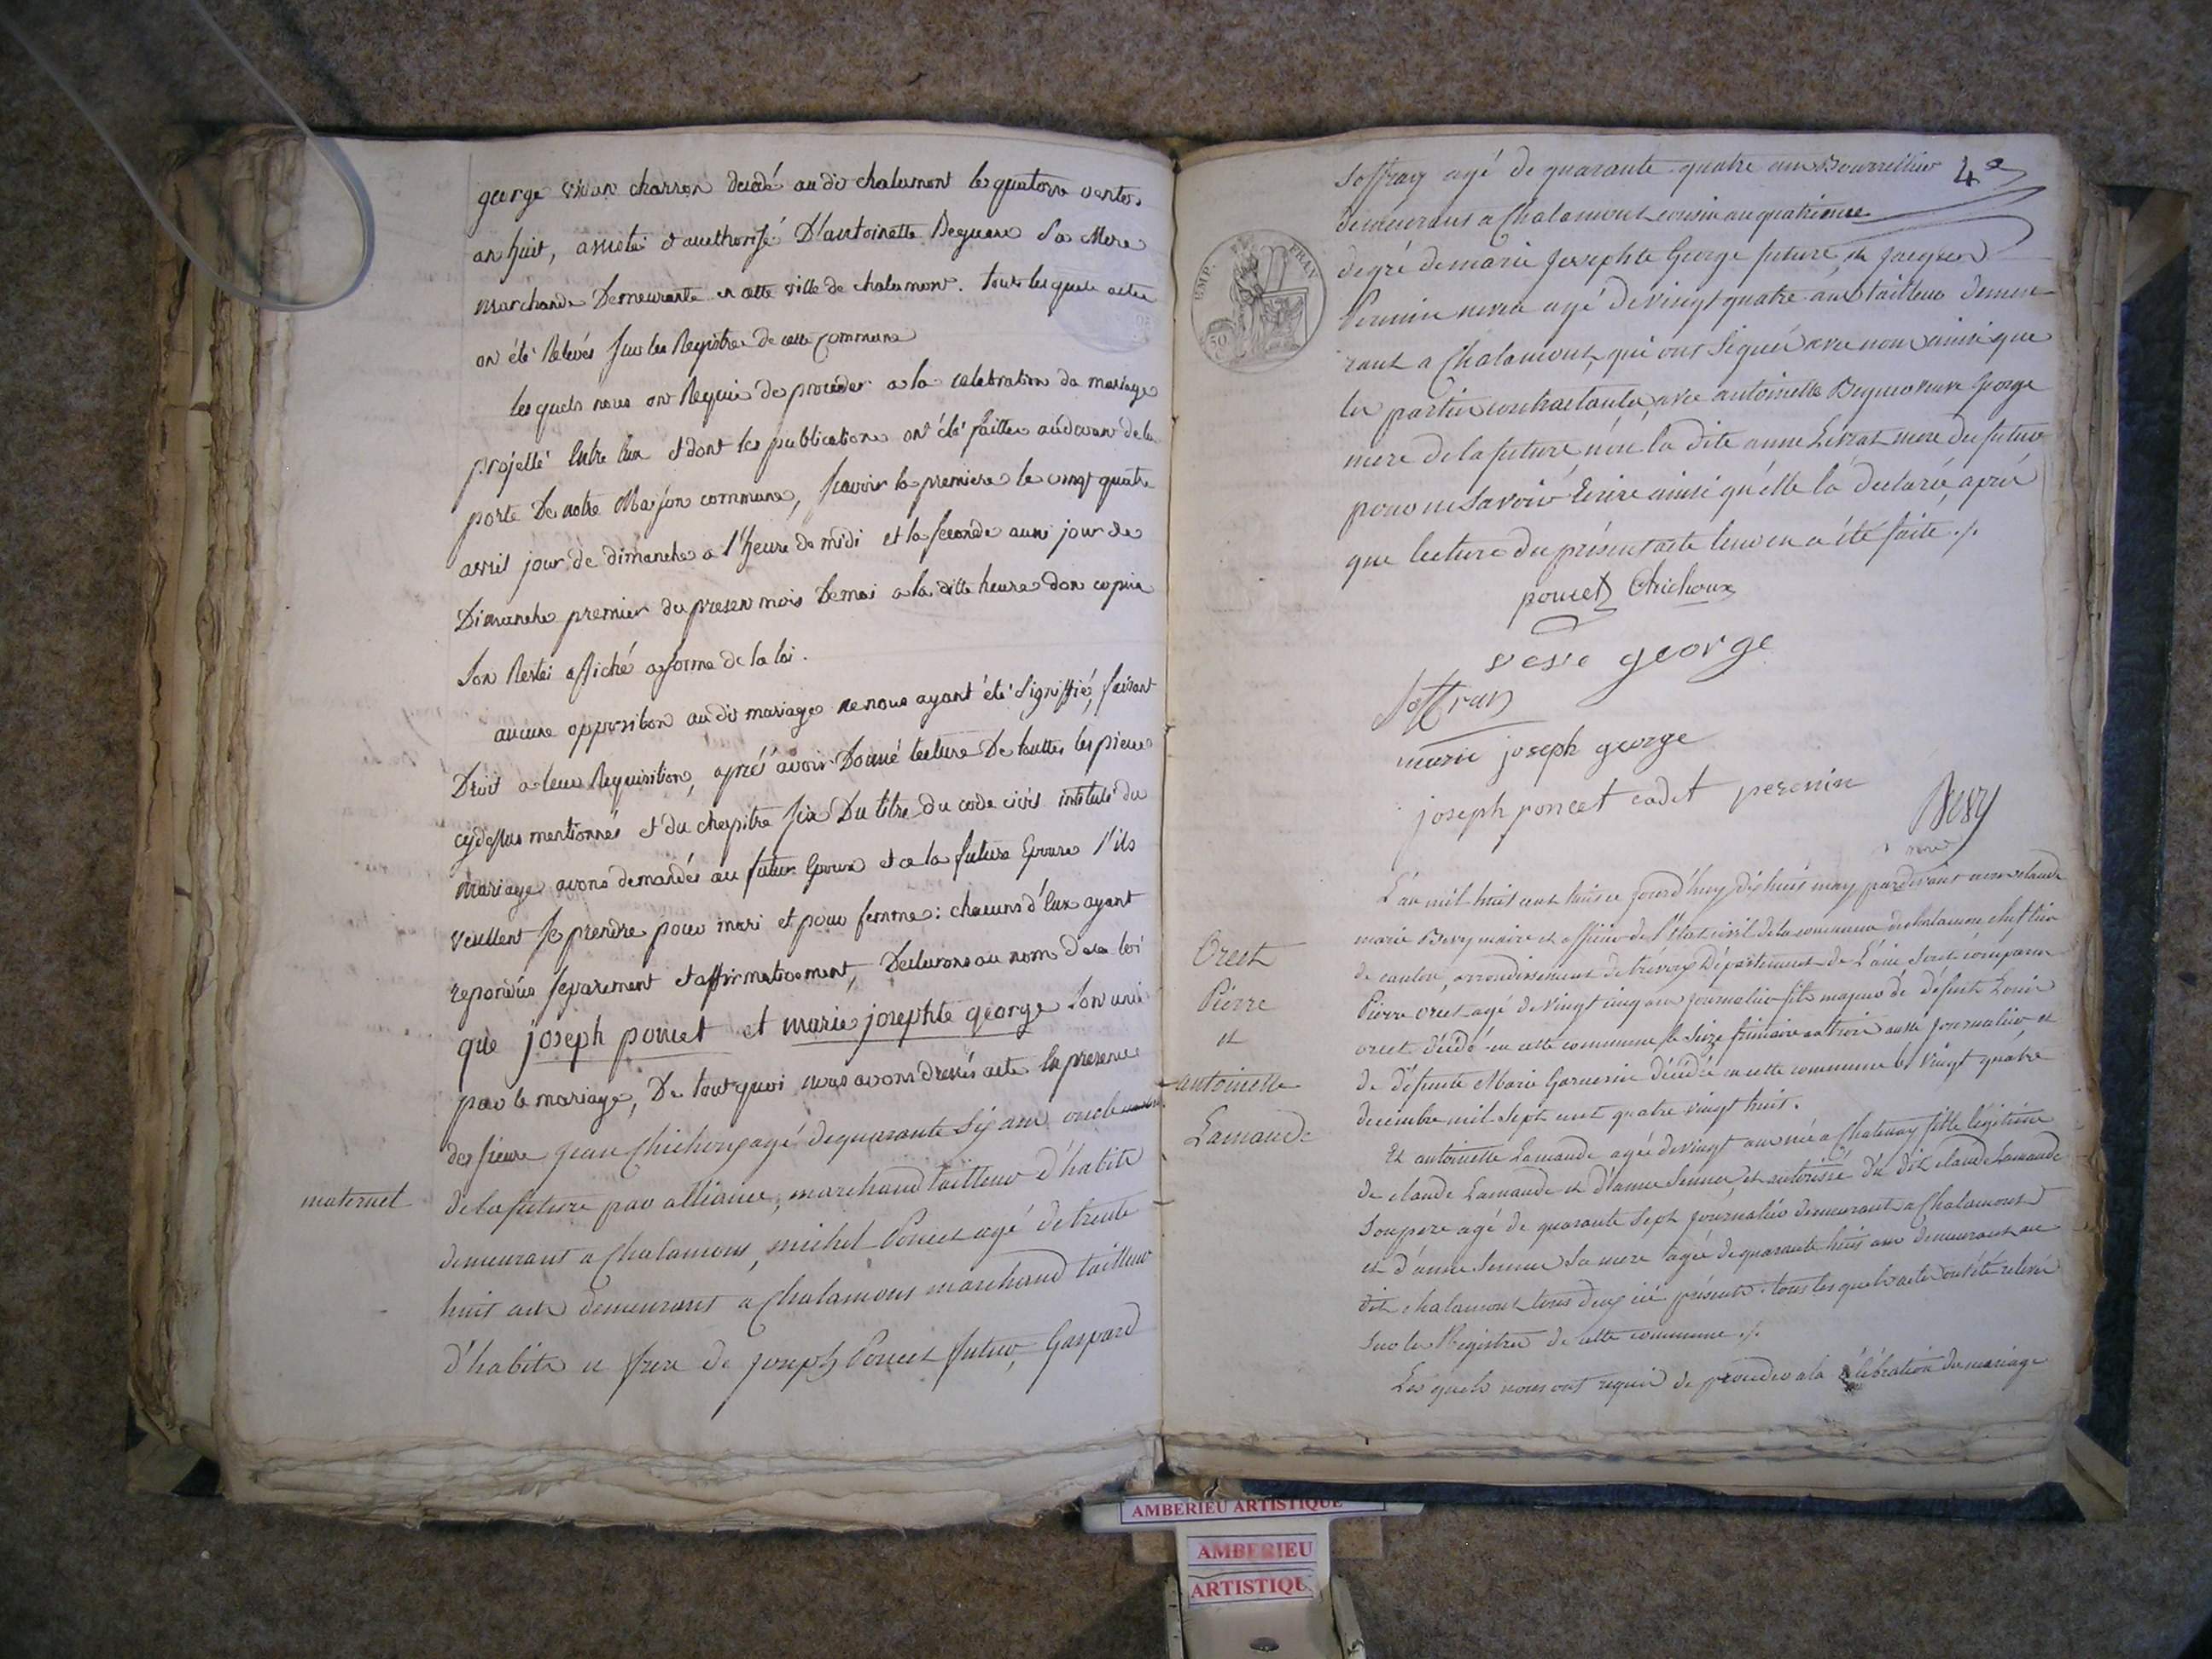 george vivan charron decédé au dit chalamont le quatorze ventose
an huit, assistée et authorisé D'antoinette Beguere Sa Mere
marchande Demeurante en cette ville de chalamont. tous lesquels actes
on été Relevés sur les Registres de cette commune
lesquels nous ont Requis de proceder a la celebration du mariage
projetté Entre Eux et dont les publications ont été faittes audevant de la
porte De notre Maison commune, sçavoir la premiere le vingt quatre
avril jour de dimanche a l'heure de midi et la seconde aussi jour de
Dimanche premier du present mois De mai a la ditte heure don copie
Son Restée affiché a forme de la loi.
aucune opposition au dit mariage ne nous ayant été Signiffié, faisant
Droit a leur Requisition, après avoir Donné lecture De touttes les pieces
cydessus mentionnés et du chapitre six Du titre du code civil intitulé du
Mariage avons demandés au futur Epoux et a la future Epouse s'ils
veullent se prendre pour mari et pour femme: chacuns d'Eux ayant
repondus separement et affirmativement, Declarons au nom de la loi
que joseph poncet et marie josephte george Son unis
par le mariage, De tout quoi nous avons dressés acte En presence
des sieurs jean Chichoux agé de quarante Six ans oncle
maternel
de la future par alliance, marchand tailleur d'habits
demeurant a Chalamont, michel Poncet agé de trente
huit ans demeurant a Chalamont marchand tailleur
d'habits et frere de joseph Poncet futur, Gaspard
Soffray agé de quarante quatre ans Bourrellier 4e
demeurant a Chalamont cousin au quatrieme
EMP. FRAN
50
degré de marie josephte George future, et jacques
Perenin agé de vingt quatre ans tailleur demeu-
rant a Chalamont, qui ont Signés avec nous ainsi que
les parties contractantes, avec antoinette Beguere veuve George
mere de la future non la dite anne Livrat mere du futur
pour ne Savoir Ecrire ainsi qu'elle l'a declaré, après
que lecture du présent acte leur en a été faite ./.
poncet Chichoux
veve george
Soffray
marie joseph george
joseph poncet cadet perenin
Bevy
L'an mil huit cent huit ce jourd'huy dixhuit may pardevant nous claude
marie Bevy maire et officier de l'état civil de la commune de chalamont chef lieu
de canton, arrondissement de trévoux Département de L'ain Sont comparus
Orset
Pierre
et
antoinette
Lamande
Pierre orset agé de vingt cinq ans journalier fils majeur de défunt Louis
orset décédé en cette commune le Seize frimaire an trois aussi journalier, et
de défunte Marie Garnerin décédée en cette commune le vingt quatre
decembre mil Sept cent quatre vingt huit.
Et antoinette Lamande agée de vingt ans née a Chatenay fille légitime
de claude Lamande et d'anne Sennes, et autorisée du dit claude Lamande
Son pere agé de quarante Sept journalier demeurant a Chalamont
et d'anne Sennes Sa mere agée de quarante huit ans demeurant au
dit chalamont tous deux ici présents. tous lesquels actes ont été relevés
Sur les Registres de cette commune ./.
Lesquels nous ont requis de proceder a la célébration du mariage
AMBERIEU ARTISTIQUE
AMBERIEU
ARTISTIQU